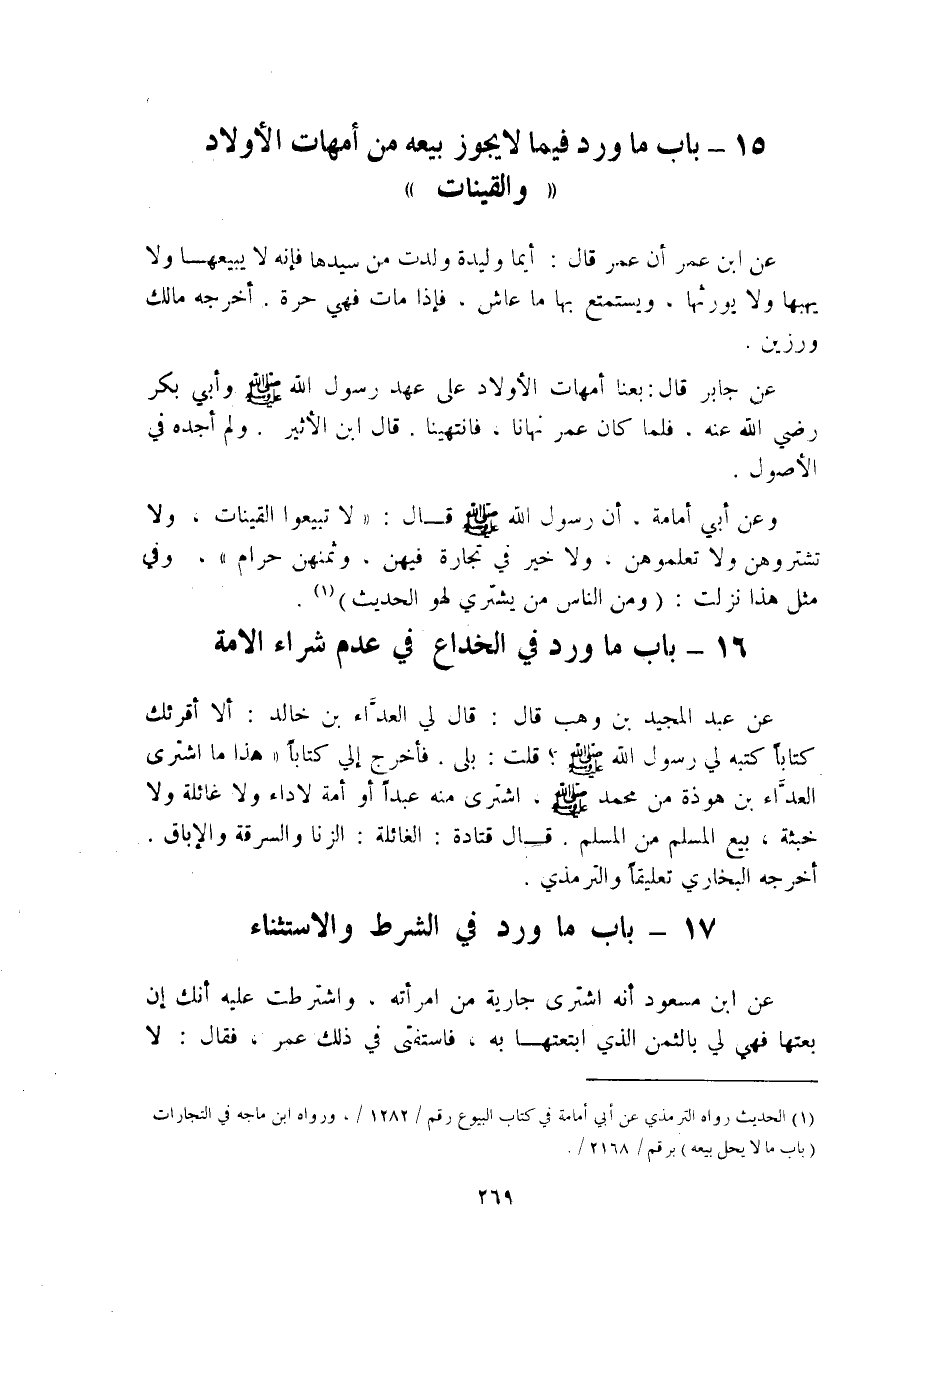 ١٥ – باب ما ورد فيما لايجوز بيعه من أمهات الأولاد
« والقينات »
عن ابن عمر أن عمر قال : أيما وليدة ولدت من سيدها فإنه لا يبيعهـا ولا
يهبها ولا يورثها . ويستمتع بها ما عاش . فإذا مات فهي حرة . أخرجه مالك
ورزين .
عن جابر قال : بعنا أمهات الأولاد على عهد رسول الله ﷺ وأبي بكر
رضي الله عنه . فلما كان عمر نهانا ، فانتهينا . قال ابن الأثير . ولم أجده في
الأصول .
وعن أبي أمامة . أن رسول الله ﷺ قـال : « لا تبيعوا القينات ، ولا
تشتروهن ولا تعلموهن ، ولا خير في تجارة فيهن . وثمنهن حرام » . وفي
مثل هذا نزلت : ( ومن الناس من يشتري لهو الحديث )(١) .
١٦ – باب ما ورد في الخداع في عدم شراء الامة
عن عبد المجيد بن وهب قال : قال لي العدَّاء بن خالد : ألا أقرئك
كتاباً كتبه لي رسول الله ﷺ ؟ قلت : بلى . فأخرج إلي كتاباً « هذا ما اشترى
العدَّاء بن هوذة من محمد ﷺ ، اشترى منه عبداً أو أمة لاداء ولا غائلة ولا
خبثة ، بيع المسلم من المسلم . قـال قتادة : الغائلة : الزنا والسرقة والإباق .
أخرجه البخاري تعليقاً والترمذي .
١٧ – باب ما ورد في الشرط والاستثناء
عن ابن مسعود أنه اشترى جارية من امرأته . واشترطت عليه أنك إن
بعتها فهي لي بالثمن الذي ابتعتهـا به ، فاستفتى في ذلك عمر ، فقال : لا
(١) الحديث رواه الترمذي عن أبي أمامة في كتاب البيوع رقم / ١٢٨٢ / ، ورواه ابن ماجه في التجارات
( باب ما لا يحل بيعه ) برقم / ٢١٦٨ / .
٢٦٩